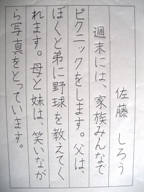 佐藤 しろう
週末には、家族みんなで
ピクニックをします。父は、
ぼくと弟に野球を教えてく
れます。母と妹は、笑いなが
ら写真をとっています。